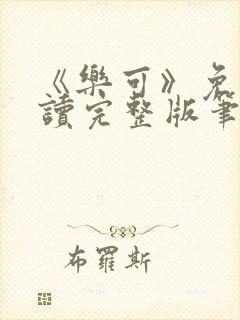 《樂可》免
讀完整版筆
布羅斯